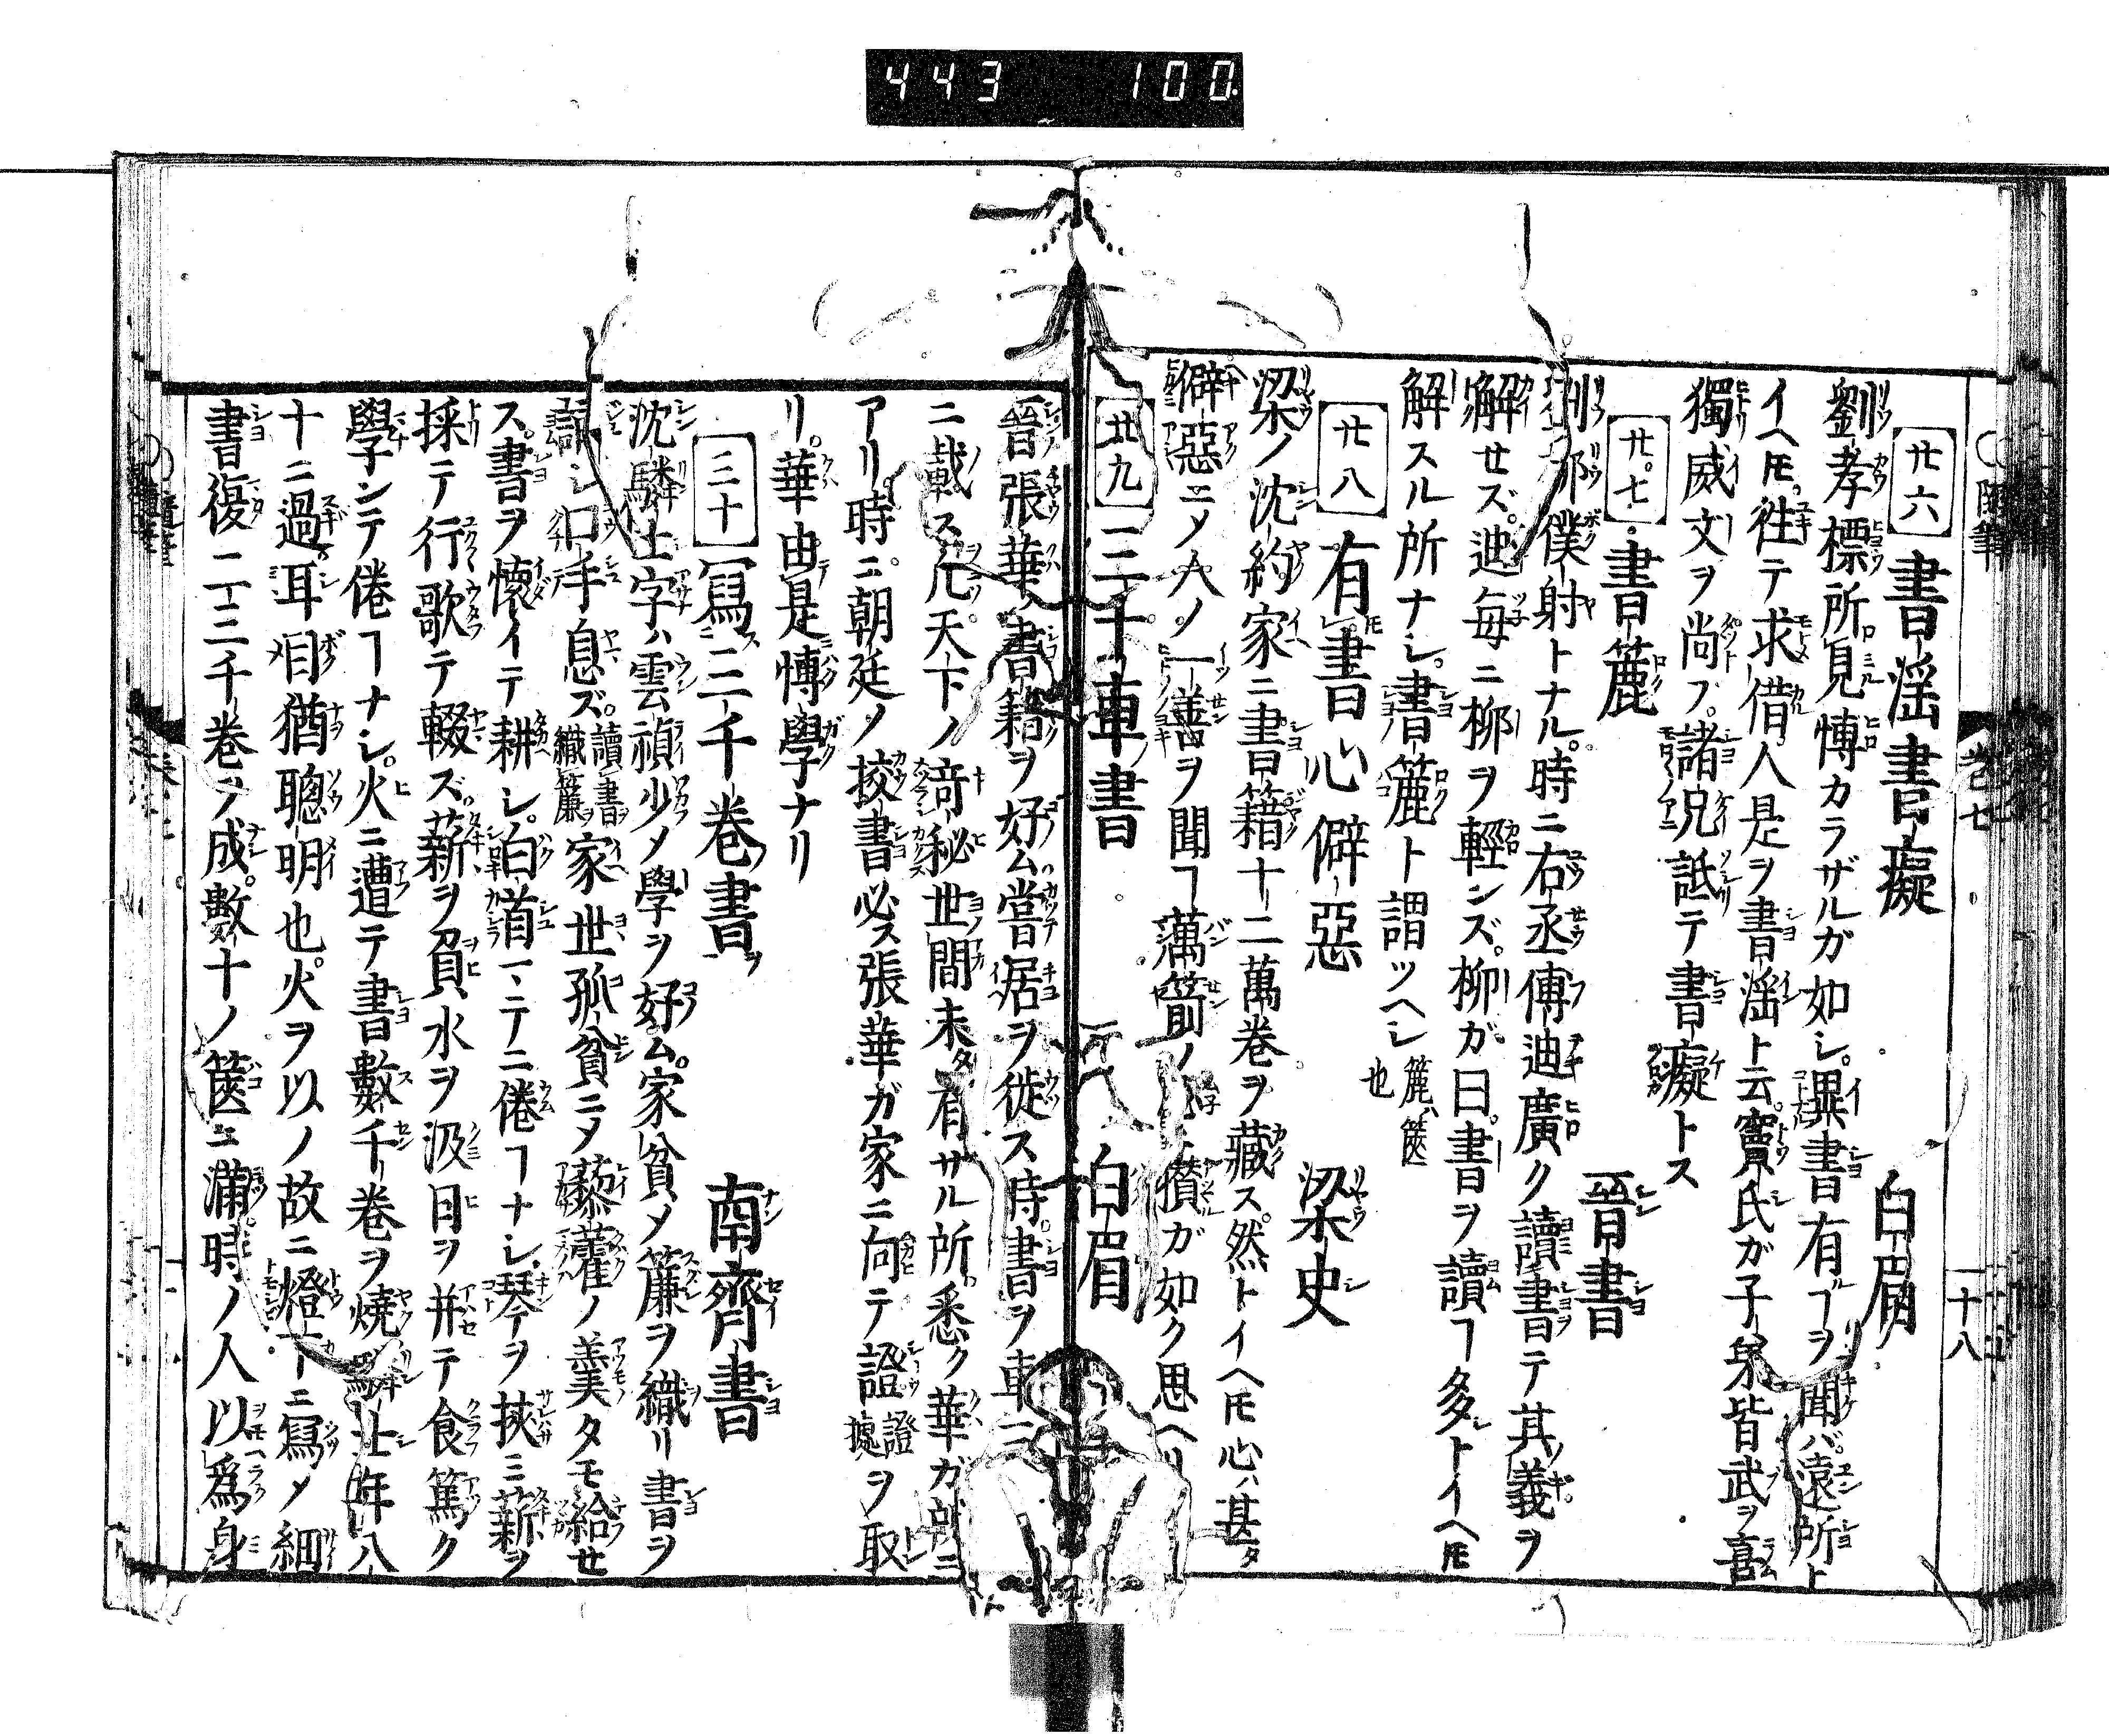 443 100
○隨筆 卷七 十八
廿六 書滛書癡 白眉
劉孝標所見愽カラザルガ如シ。異書有ヿヲ聞バ遠所ト
イヘ𪜈。徃テ求借。人是ヲ書滛ト云。竇氏ガ子弟皆武ヲ喜
獨威文ヲ尚フ。諸兄詆テ書癡トス
廿七 書簏 晉書
劉柳僕射トナル。時ニ右丞傅迪廣ク讀書テ其義ヲ
解せズ。迪毎ニ柳ヲ輕ンズ。柳ガ曰。書ヲ讀ヿ多トイヘ𪜈
解スル所ナシ。書簏ト謂ツヘシ 簏ハ篋也
廿八 有書心僻惡 梁史
梁ノ沈約家ニ書籍十二萬巻ヲ藏ス。然トイヘ𪜈心ハ甚タ
僻惡ニメ人ノ一善ヲ聞ヿ萬箭ノ 攅ガ如ク思ヘリ
廿九 三十車書 白眉
晉張華書籍ヲ好ム嘗居ヲ徙ス時書ヲ車三
ニ載ス凡天下ノ竒秘世間未タ有サル所悉ク華ガ所ニ
アリ。時ニ朝廷ノ挍書必ス張華ガ家ニ向テ證 證據ヲ取
リ。華由是愽學ナリ
三十 冩二三千巻書 南齊書
沈驎士字ハ雲禎少メ學ヲ好ム。家貧メ簾ヲ織リ書ヲ
誦シ口手息ズ。讀書織簾家世孤貧ニメ藜藿ノ羹タモ給せ
ス。書ヲ懷イテ耕シ。白首ニテ倦ヿナシ。琴ヲ挾ミ薪ヲ
採テ行歌テ輟ズ。薪ヲ負水ヲ汲日ヲ并テ食篤ク
學ンテ倦ヿナシ。火ニ遭テ書數千巻ヲ燒 士年八
十ニ過。耳目猶聰明也。火ヲ以ノ故ニ燈下ニ寫メ細
書復二三千巻ヲ成。數十ノ篋ニ滿。時ノ人以爲身